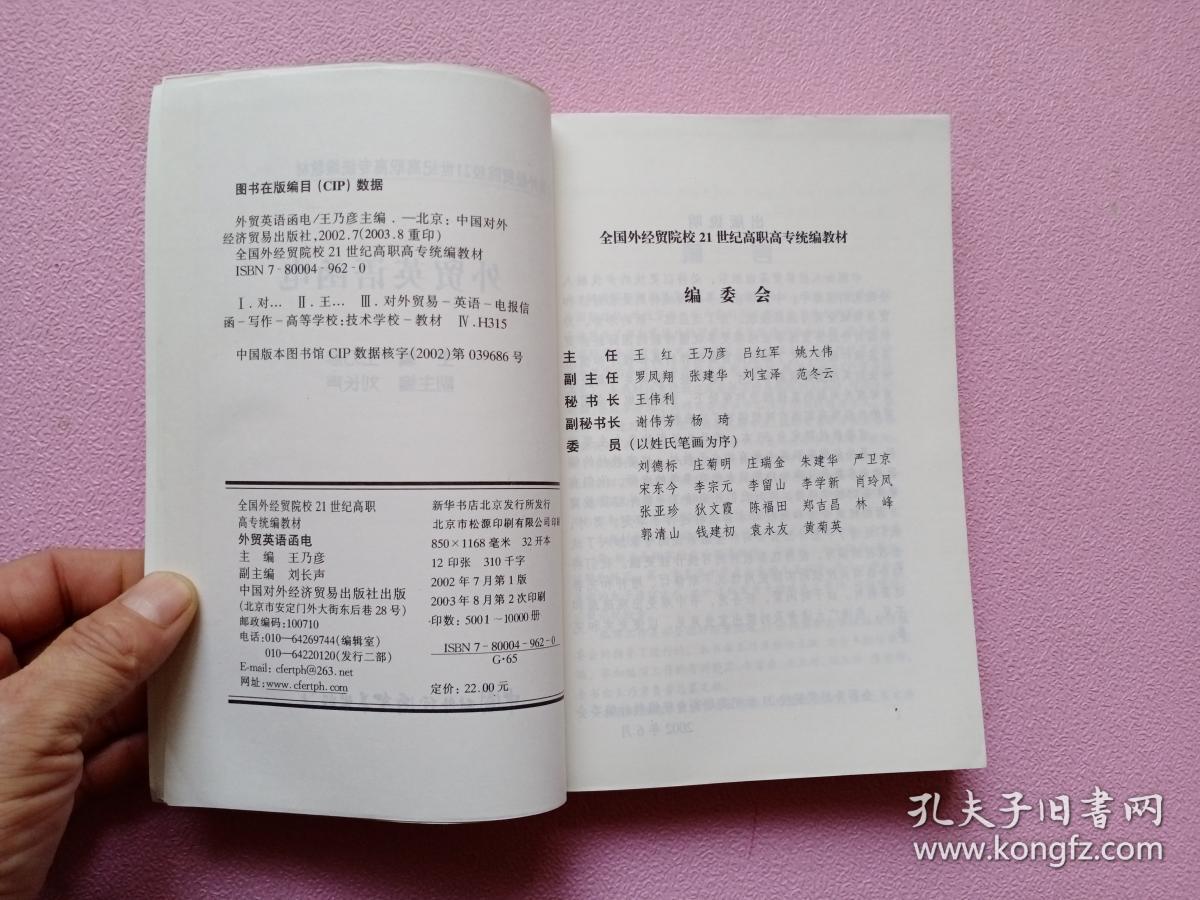 图书在版编目(CIP)数据
外贸英语函电/王乃彦主编．—北京：中国对外
经济贸易出版社,2002.7(2003.8 重印)
全国外经贸院校 21 世纪高职高专统编教材
ISBN 7-80004-962-0
Ⅰ.对… Ⅱ.王… Ⅲ.对外贸易－英语－电报信
函－写作－高等学校:技术学校－教材 Ⅳ.H315
中国版本图书馆 CIP 数据核字(2002)第 039686 号
全国外经贸院校 21 世纪高职
高专统编教材
外贸英语函电
主 编 王乃彦
副主编 刘长声
中国对外经济贸易出版社出版
(北京市安定门外大街东后巷 28 号)
邮政编码:100710
电话:010—64269744(编辑室)
010—64220120(发行二部)
E-mail: cfertph@263.net
网址:www.cfertph.com
新华书店北京发行所发行
北京市松源印刷有限公司印刷
850×1168 毫米 32 开本
12 印张 310 千字
2002 年 7 月第 1 版
2003 年 8 月第 2 次印刷
印数: 5001－10000 册
ISBN 7-80004-962-0
G·65
定价: 22.00 元
全国外经贸院校 21 世纪高职高专统编教材
编 委 会
主 任 王 红 王乃彦 吕红军 姚大伟
副 主 任 罗凤翔 张建华 刘宝泽 范冬云
秘 书 长 王伟利
副秘书长 谢伟芳 杨 琦
委 员 (以姓氏笔画为序)
刘德标 庄菊明 庄瑞金 朱建华 严卫京
宋东今 李宗元 李留山 李学新 肖玲凤
张亚珍 狄文霞 陈福田 郑吉昌 林 峰
郭清山 钱建初 袁永友 黄菊英
孔夫子旧书网
www.kongfz.com